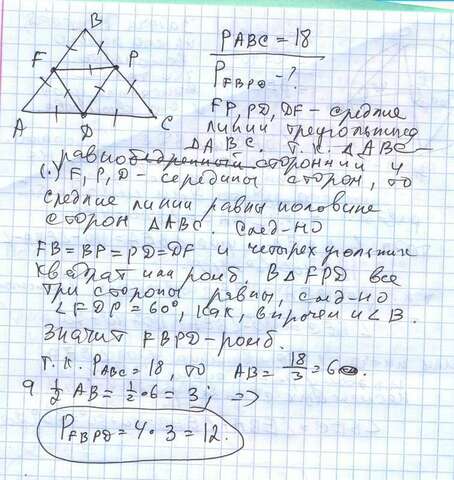 B
F
P
A
D
C
P ABC = 18
P FBPD - ?
FP, PD, DF - средние
линии треугольника
△ABC. Т. к. △ABC -
равнобедренный сторонний и
(.) F, P, D - середины сторон, то
средние линии равны половине
сторон △ABC. След-но
FB = BP = PD = DF и четырехугольник
квадрат или ромб. В △FPD все
три стороны равны, след-но
∠FDP = 60°, как, впрочем и ∠B.
Значит FBPD - ромб.
Т. к. P ABC = 18, то AB = 18/3 = 6
а 1/2 AB = 1/2 · 6 = 3; =>
P FBPD = 4 · 3 = 12.